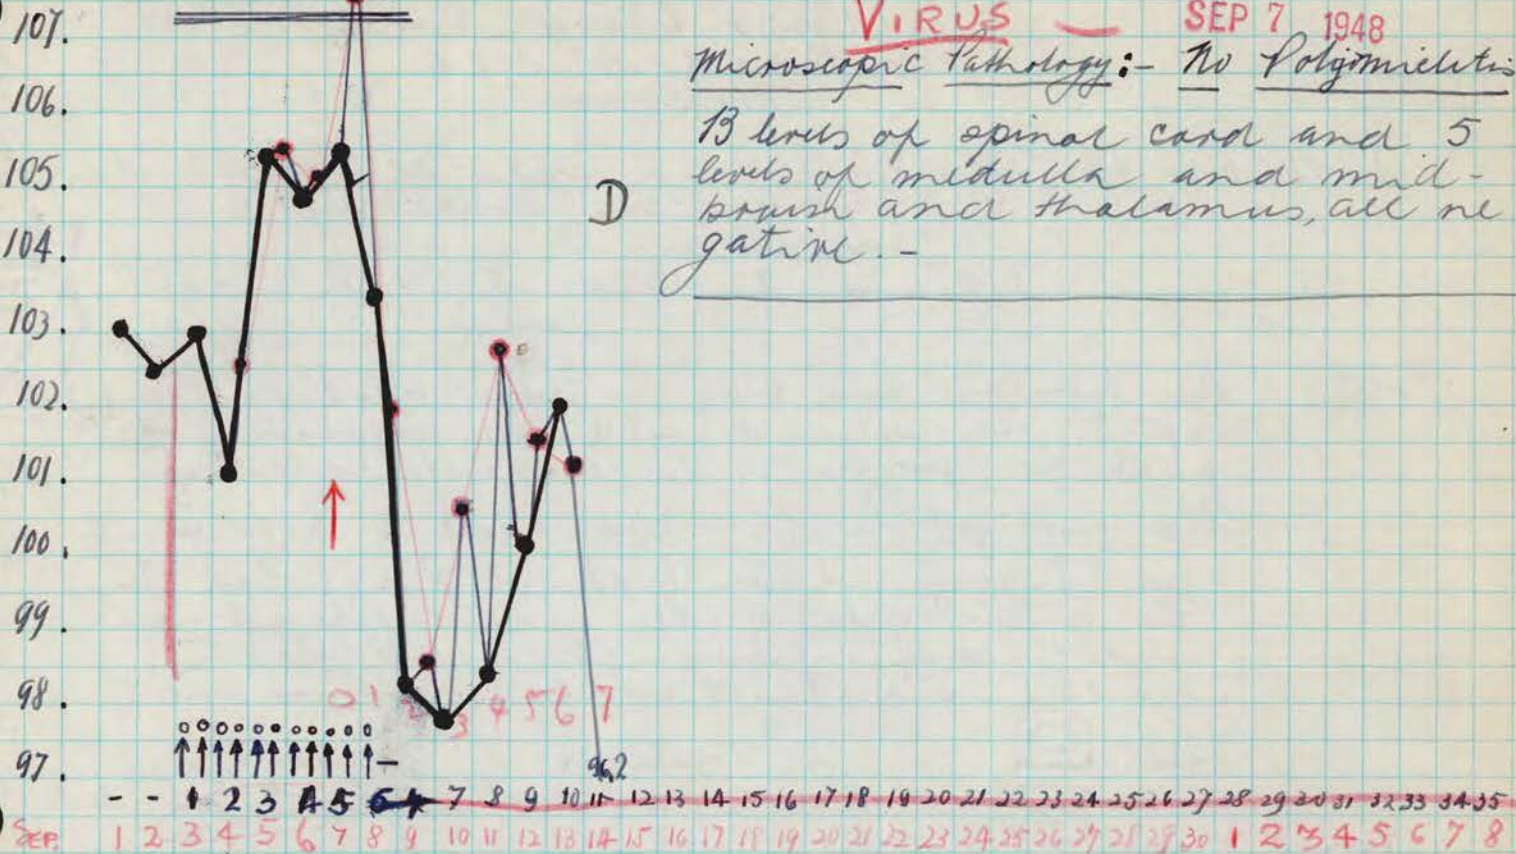 107.
VIRUS — SEP 7 1948
Microscopic Pathology:- No Poligomieletis
106.
13 levels of spinal cord and 5
105.
levels of medulla and mid-
D
brain and thalamus, all ne
104.
gative. -
103.
102.
101.
100.
99.
98.
0 1 2 3 4 5 6 7
97.
96.2
- - 1 2 3 4 5 6 7 8 9 10 11 12 13 14 15 16 17 18 19 20 21 22 23 24 25 26 27 28 29 30 31 32 33 34 35
SEP. 1 2 3 4 5 6 7 8 9 10 11 12 13 14 15 16 17 18 19 20 21 22 23 24 25 26 27 28 29 30 1 2 3 4 5 6 7 8